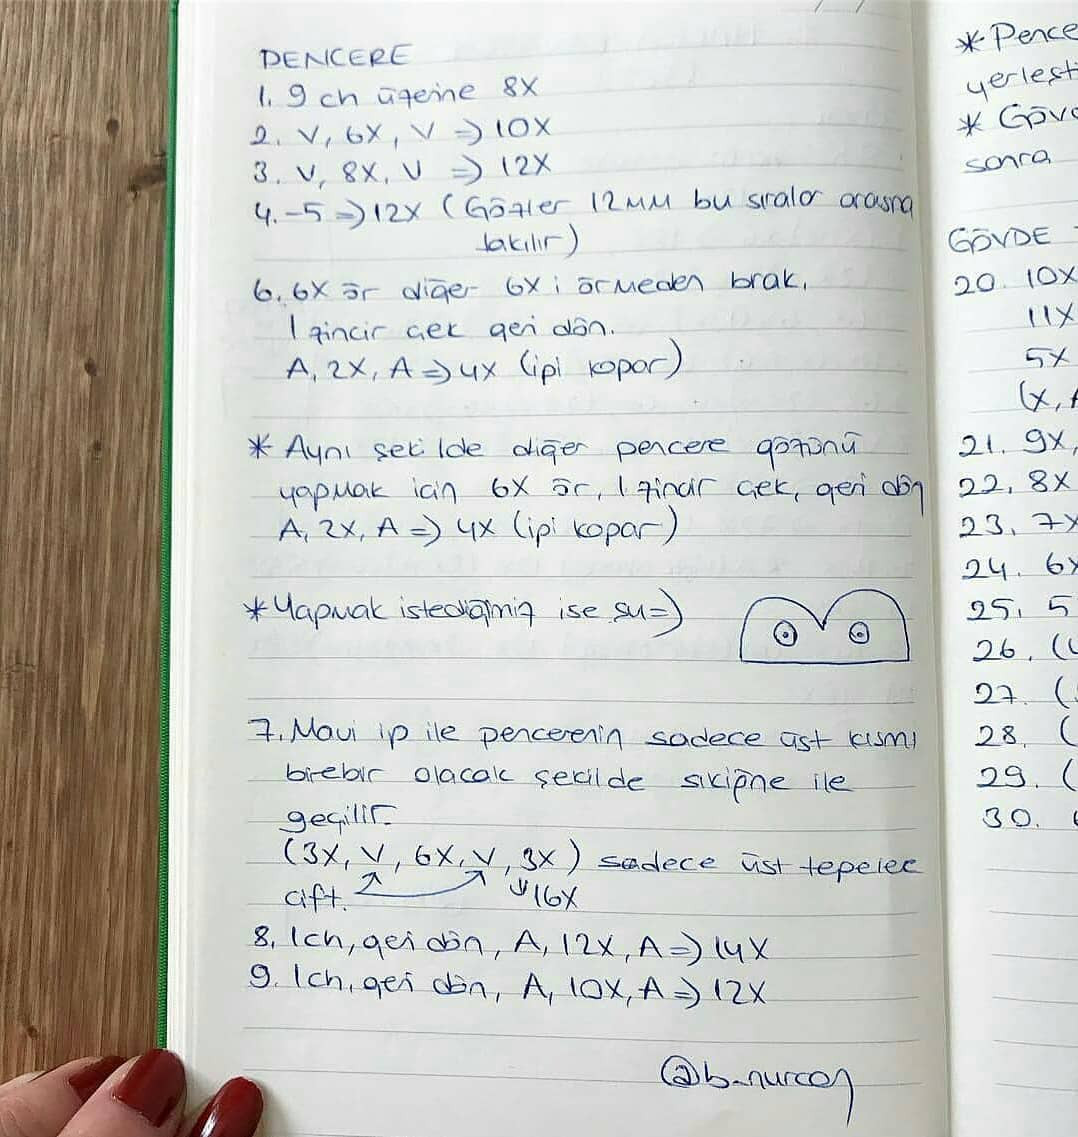 PENCERE
1. 9 ch üzerine 8X
2. V, 6X, V => 10X
3. V, 8X, V => 12X
4.-5 => 12X (Gözler 12MM bu sıralar arasına
takılır)
6. 6X ör diğer 6X i örmeden bırak.
1 zincir çek geri dön.
A, 2X, A => 4X (ipi kopar)
* Aynı şekilde diğer pencere gözünü
yapmak için 6X ör, 1 zincir çek, geri dön
A, 2X, A => 4X (ipi kopar)
* Yapmak istediğimiz ise şu =>
7. Mavi ip ile pencerenin sadece üst kısmı
birebir olacak şekilde sık iğne ile
geçilir.
(3X, V, 6X, V, 3X) sadece üst tepeler
çift. 16X
8. 1ch, geri dön, A, 12X, A => 14X
9. 1ch, geri dön, A, 10X, A => 12X
@b_nurcan
* Pence
yerleşti
* Gövd
sonra
GÖVDE
20. 10X
11X
5X
(X, A
21. 9X,
22. 8X
23. 7X
24. 6X
25. 5
26. (
27. (
28. (
29. (
30.